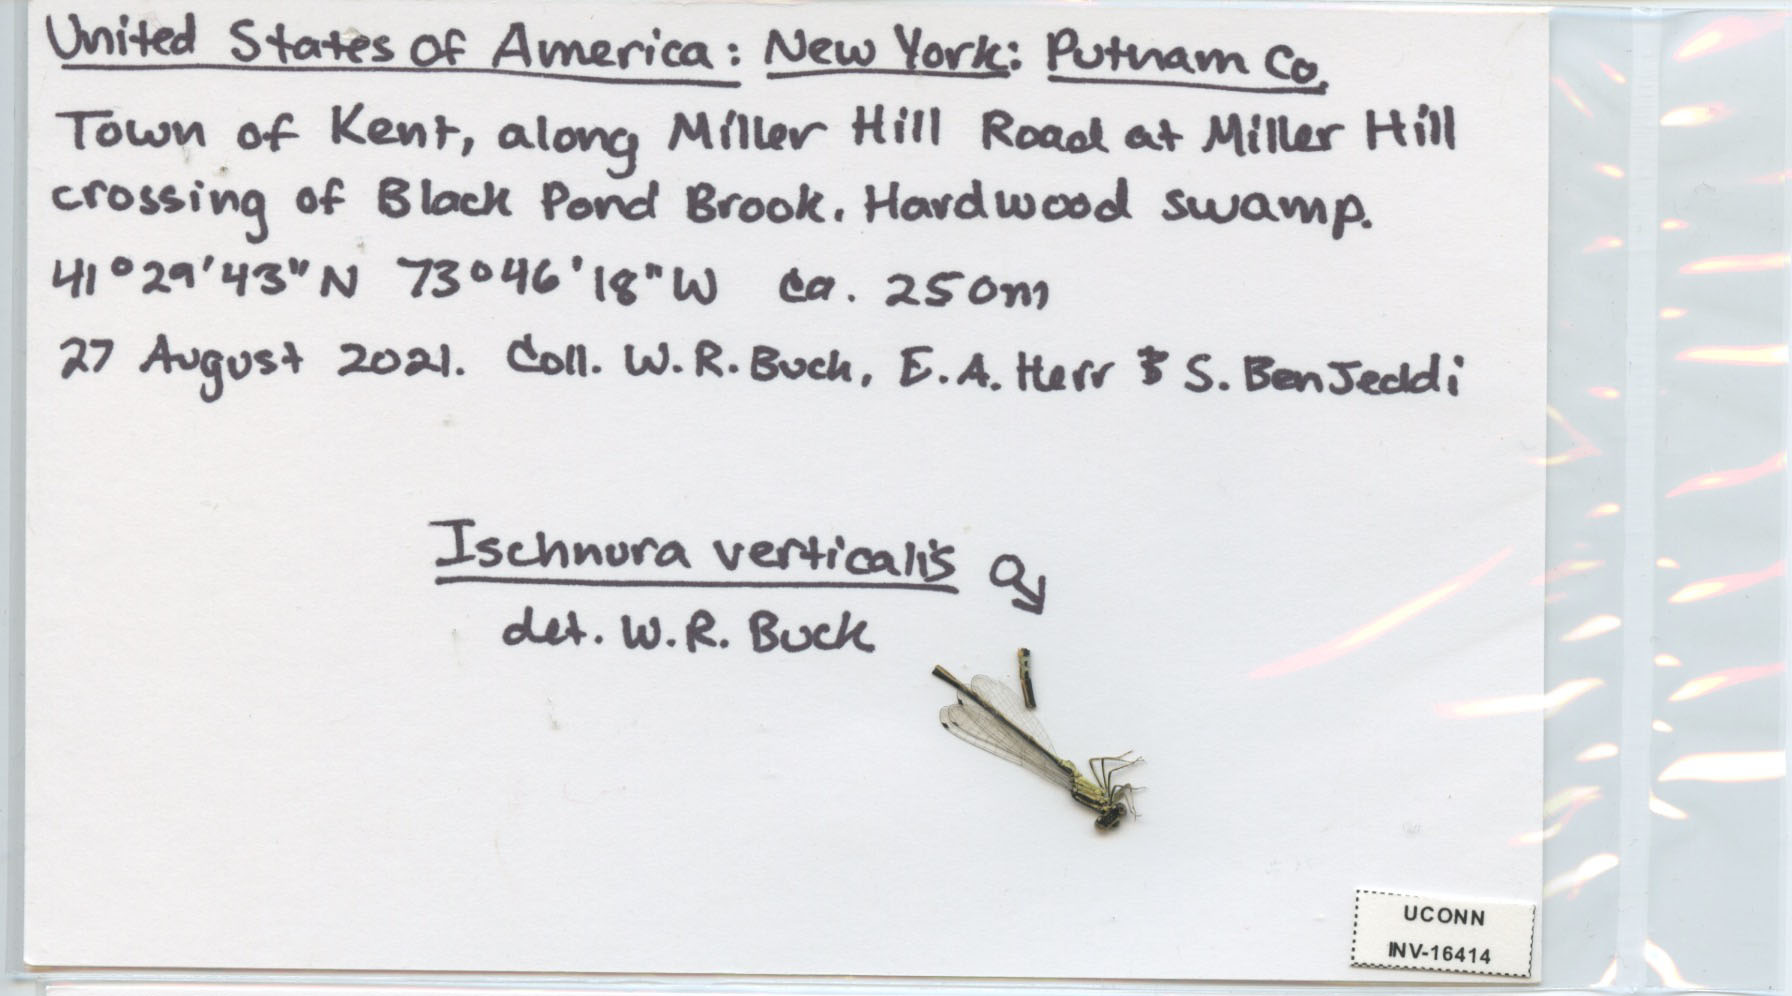 United States of America: New York: Putnam Co.
Town of Kent, along Miller Hill Road at Miller Hill
crossing of Black Pond Brook. Hardwood swamp.
41°29'43"N 73°46'18"W ca. 250m
27 August 2021. Coll. W.R. Buck, E.A. Herr & S. BenJeddi
Ischnura verticalis ♂
det. W.R. Buck
UCONN
INV-16414